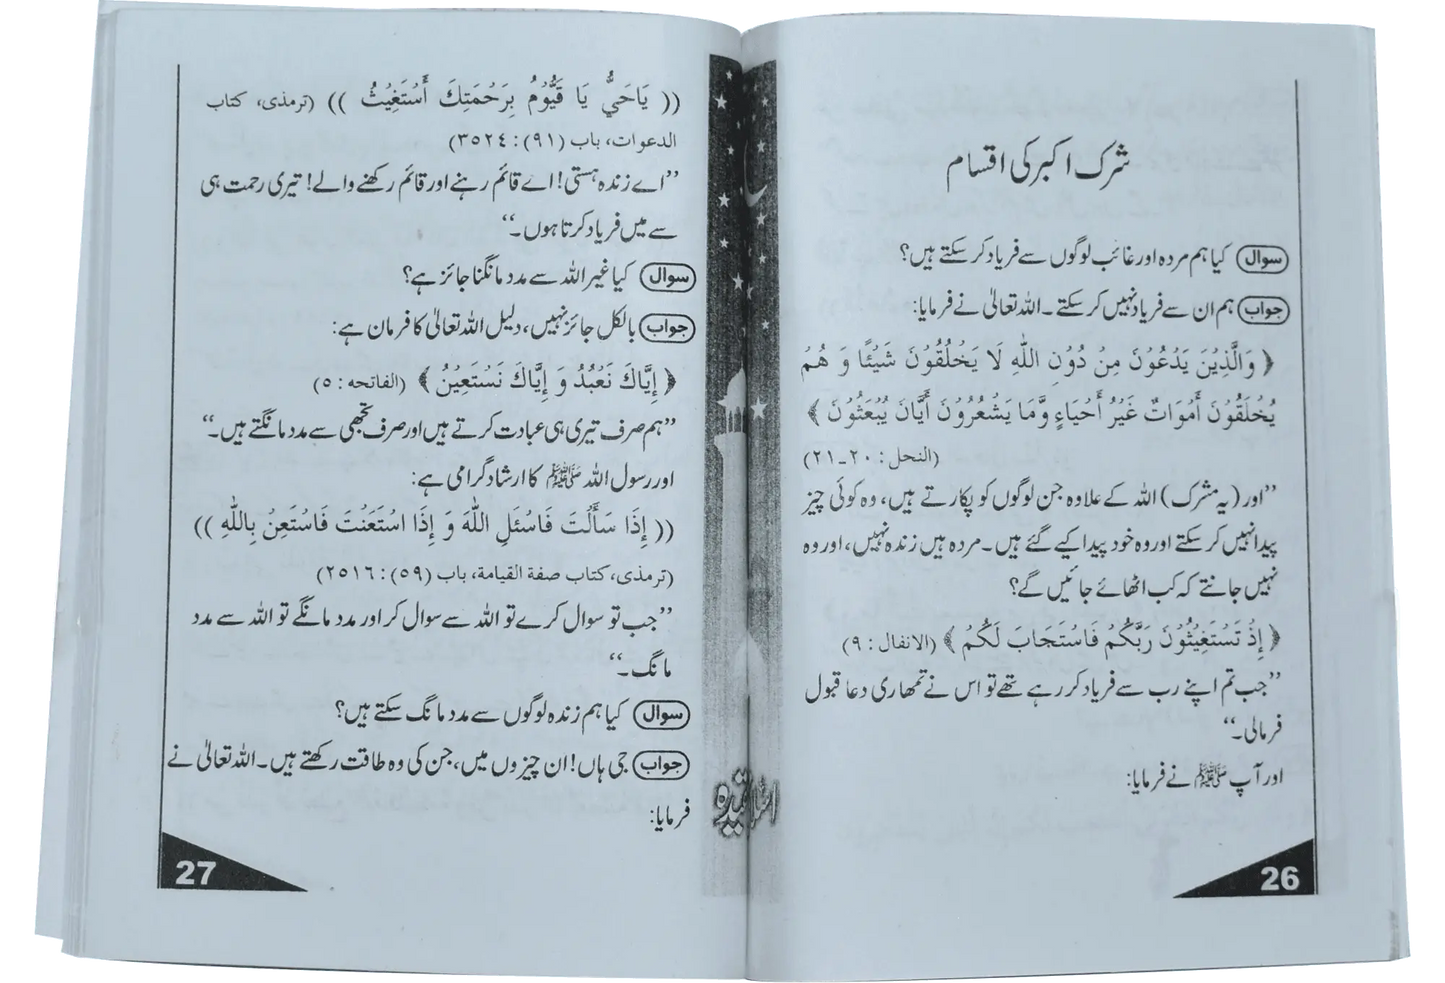 شرک اکبر کی اقسام
سوال کیا ہم مردہ اور غائب لوگوں سے فریاد کر سکتے ہیں؟
جواب ہم ان سے فریاد نہیں کر سکتے۔ اللہ تعالیٰ نے فرمایا:
﴿ وَالَّذِيْنَ يَدْعُوْنَ مِنْ دُوْنِ اللّٰهِ لَا يَخْلُقُوْنَ شَيْئًا وَ هُمْ
يُخْلَقُوْنَ أَمْوَاتٌ غَيْرُ أَحْيَاءٍ وَّمَا يَشْعُرُوْنَ أَيَّانَ يُبْعَثُوْنَ ﴾
(النحل: ٢٠۔٢١)
”اور (یہ مشرک) اللہ کے علاوہ جن لوگوں کو پکارتے ہیں، وہ کوئی چیز
پیدا نہیں کر سکتے اور وہ خود پیدا کیے گئے ہیں۔ مردہ ہیں زندہ نہیں، اور وہ
نہیں جانتے کہ کب اٹھائے جائیں گے؟
﴿ إِذْ تَسْتَغِيْثُوْنَ رَبَّكُمْ فَاسْتَجَابَ لَكُمْ ﴾ (الانفال: ٩)
”جب تم اپنے رب سے فریاد کر رہے تھے تو اس نے تمھاری دعا قبول
فرمالی۔“
اور آپ ﷺ نے فرمایا:
26
(( يَاحَيُّ يَا قَيُّوْمُ بِرَحْمَتِكَ أَسْتَغِيْثُ )) (ترمذی، کتاب
الدعوات، باب (٩١): ٣٥٢٤)
”اے زندہ ہستی! اے قائم رہنے اور قائم رکھنے والے! تیری رحمت ہی
سے میں فریاد کرتا ہوں۔“
سوال کیا غیر اللہ سے مدد مانگنا جائز ہے؟
جواب بالکل جائز نہیں، دلیل اللہ تعالیٰ کا فرمان ہے:
﴿ إِيَّاكَ نَعْبُدُ وَ إِيَّاكَ نَسْتَعِيْنُ ﴾ (الفاتحه: ٥)
”ہم صرف تیری ہی عبادت کرتے ہیں اور صرف تجھی سے مدد مانگتے ہیں۔“
اور رسول اللہ ﷺ کا ارشاد گرامی ہے:
(( إِذَا سَأَلْتَ فَاسْئَلِ اللّٰهَ وَ إِذَا اسْتَعَنْتَ فَاسْتَعِنْ بِاللّٰهِ ))
(ترمذی، کتاب صفة القيامة، باب (٥٩): ٢٥١٦)
”جب تو سوال کرے تو اللہ سے سوال کر اور مدد مانگے تو اللہ سے مدد
مانگ۔“
سوال کیا ہم زندہ لوگوں سے مدد مانگ سکتے ہیں؟
جواب جی ہاں! ان چیزوں میں، جن کی وہ طاقت رکھتے ہیں۔ اللہ تعالیٰ نے
فرمایا:
27